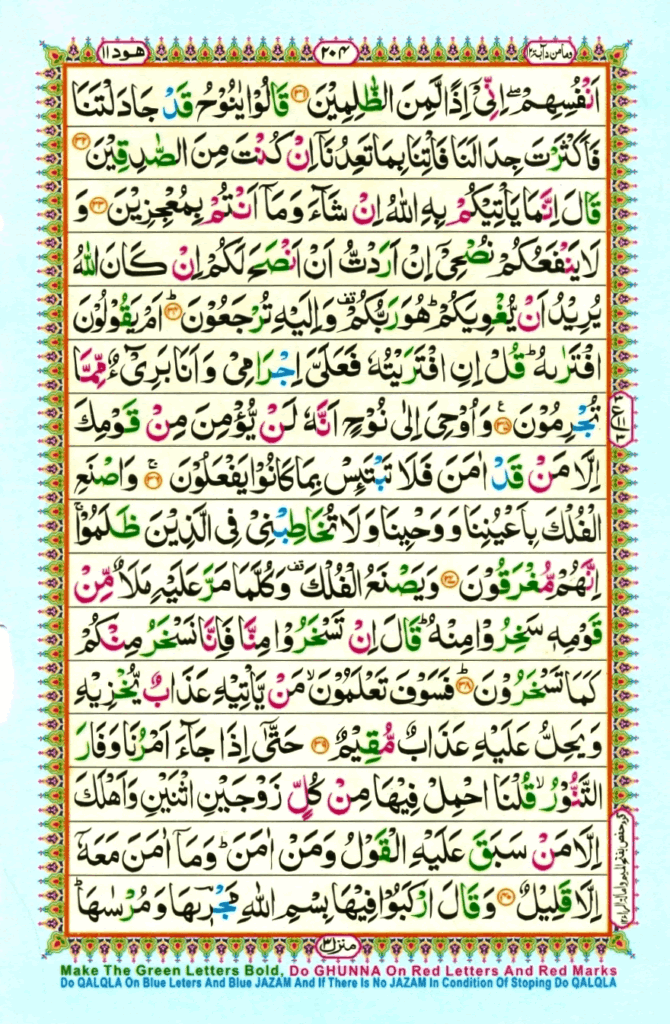 وما من دآبة ١٢
٢٠٤
هود ١١
اَنْفُسِهِمْ ۖۚ اِنِّیْۤ اِذًا لَّمِنَ الظّٰلِمِیْنَ ۝۳۱ قَالُوْا یٰنُوْحُ قَدْ جَادَلْتَنَا
فَاَكْثَرْتَ جِدَالَنَا فَاْتِنَا بِمَا تَعِدُنَاۤ اِنْ كُنْتَ مِنَ الصّٰدِقِیْنَ ۝۳۲
قَالَ اِنَّمَا یَاْتِیْكُمْ بِهِ اللّٰهُ اِنْ شَآءَ وَمَاۤ اَنْتُمْ بِمُعْجِزِیْنَ ۝۳۳ وَ
لَا یَنْفَعُكُمْ نُصْحِیْۤ اِنْ اَرَدْتُّ اَنْ اَنْصَحَ لَكُمْ اِنْ كَانَ اللّٰهُ
یُرِیْدُ اَنْ یُّغْوِیَكُمْ ؕ هُوَ رَبُّكُمْ ۫ وَاِلَیْهِ تُرْجَعُوْنَ ؕ۝۳۴ اَمْ یَقُوْلُوْنَ
افْتَرٰىهُ ؕ قُلْ اِنِ افْتَرَیْتُهٗ فَعَلَیَّ اِجْرَامِیْ وَاَنَا بَرِیْٓءٌ مِّمَّا
تُجْرِمُوْنَ ۝۳۵ ع وَاُوْحِیَ اِلٰی نُوْحٍ اَنَّهٗ لَنْ یُّؤْمِنَ مِنْ قَوْمِكَ
اِلَّا مَنْ قَدْ اٰمَنَ فَلَا تَبْتَىِٕسْ بِمَا كَانُوْا یَفْعَلُوْنَ ۚۖ۝۳۶ وَاصْنَعِ
الْفُلْكَ بِاَعْیُنِنَا وَوَحْیِنَا وَلَا تُخَاطِبْنِیْ فِی الَّذِیْنَ ظَلَمُوْا ۚ
اِنَّهُمْ مُّغْرَقُوْنَ ۝۳۷ وَیَصْنَعُ الْفُلْكَ ۫ وَكُلَّمَا مَرَّ عَلَیْهِ مَلَاٌ مِّنْ
قَوْمِهٖ سَخِرُوْا مِنْهُ ؕ قَالَ اِنْ تَسْخَرُوْا مِنَّا فَاِنَّا نَسْخَرُ مِنْكُمْ
كَمَا تَسْخَرُوْنَ ؕ۝۳۸ فَسَوْفَ تَعْلَمُوْنَ ۙ مَنْ یَّاْتِیْهِ عَذَابٌ یُّخْزِیْهِ
وَیَحِلُّ عَلَیْهِ عَذَابٌ مُّقِیْمٌ ۝۳۹ حَتّٰۤی اِذَا جَآءَ اَمْرُنَا وَفَارَ
التَّنُّوْرُ ۙ قُلْنَا احْمِلْ فِیْهَا مِنْ كُلٍّ زَوْجَیْنِ اثْنَیْنِ وَاَهْلَكَ
اِلَّا مَنْ سَبَقَ عَلَیْهِ الْقَوْلُ وَمَنْ اٰمَنَ ؕ وَمَاۤ اٰمَنَ مَعَهٗۤ
اِلَّا قَلِیْلٌ ۝۴۰ وَقَالَ ارْكَبُوْا فِیْهَا بِسْمِ اللّٰهِ مَجْؔرٖىهَا وَمُرْسٰىهَا ؕ
منزل ٣
Make The Green Letters Bold, Do GHUNNA On Red Letters And Red Marks
Do QALQLA On Blue Leters And Blue JAZAM And If There Is No JAZAM In Condition Of Stoping Do QALQLA